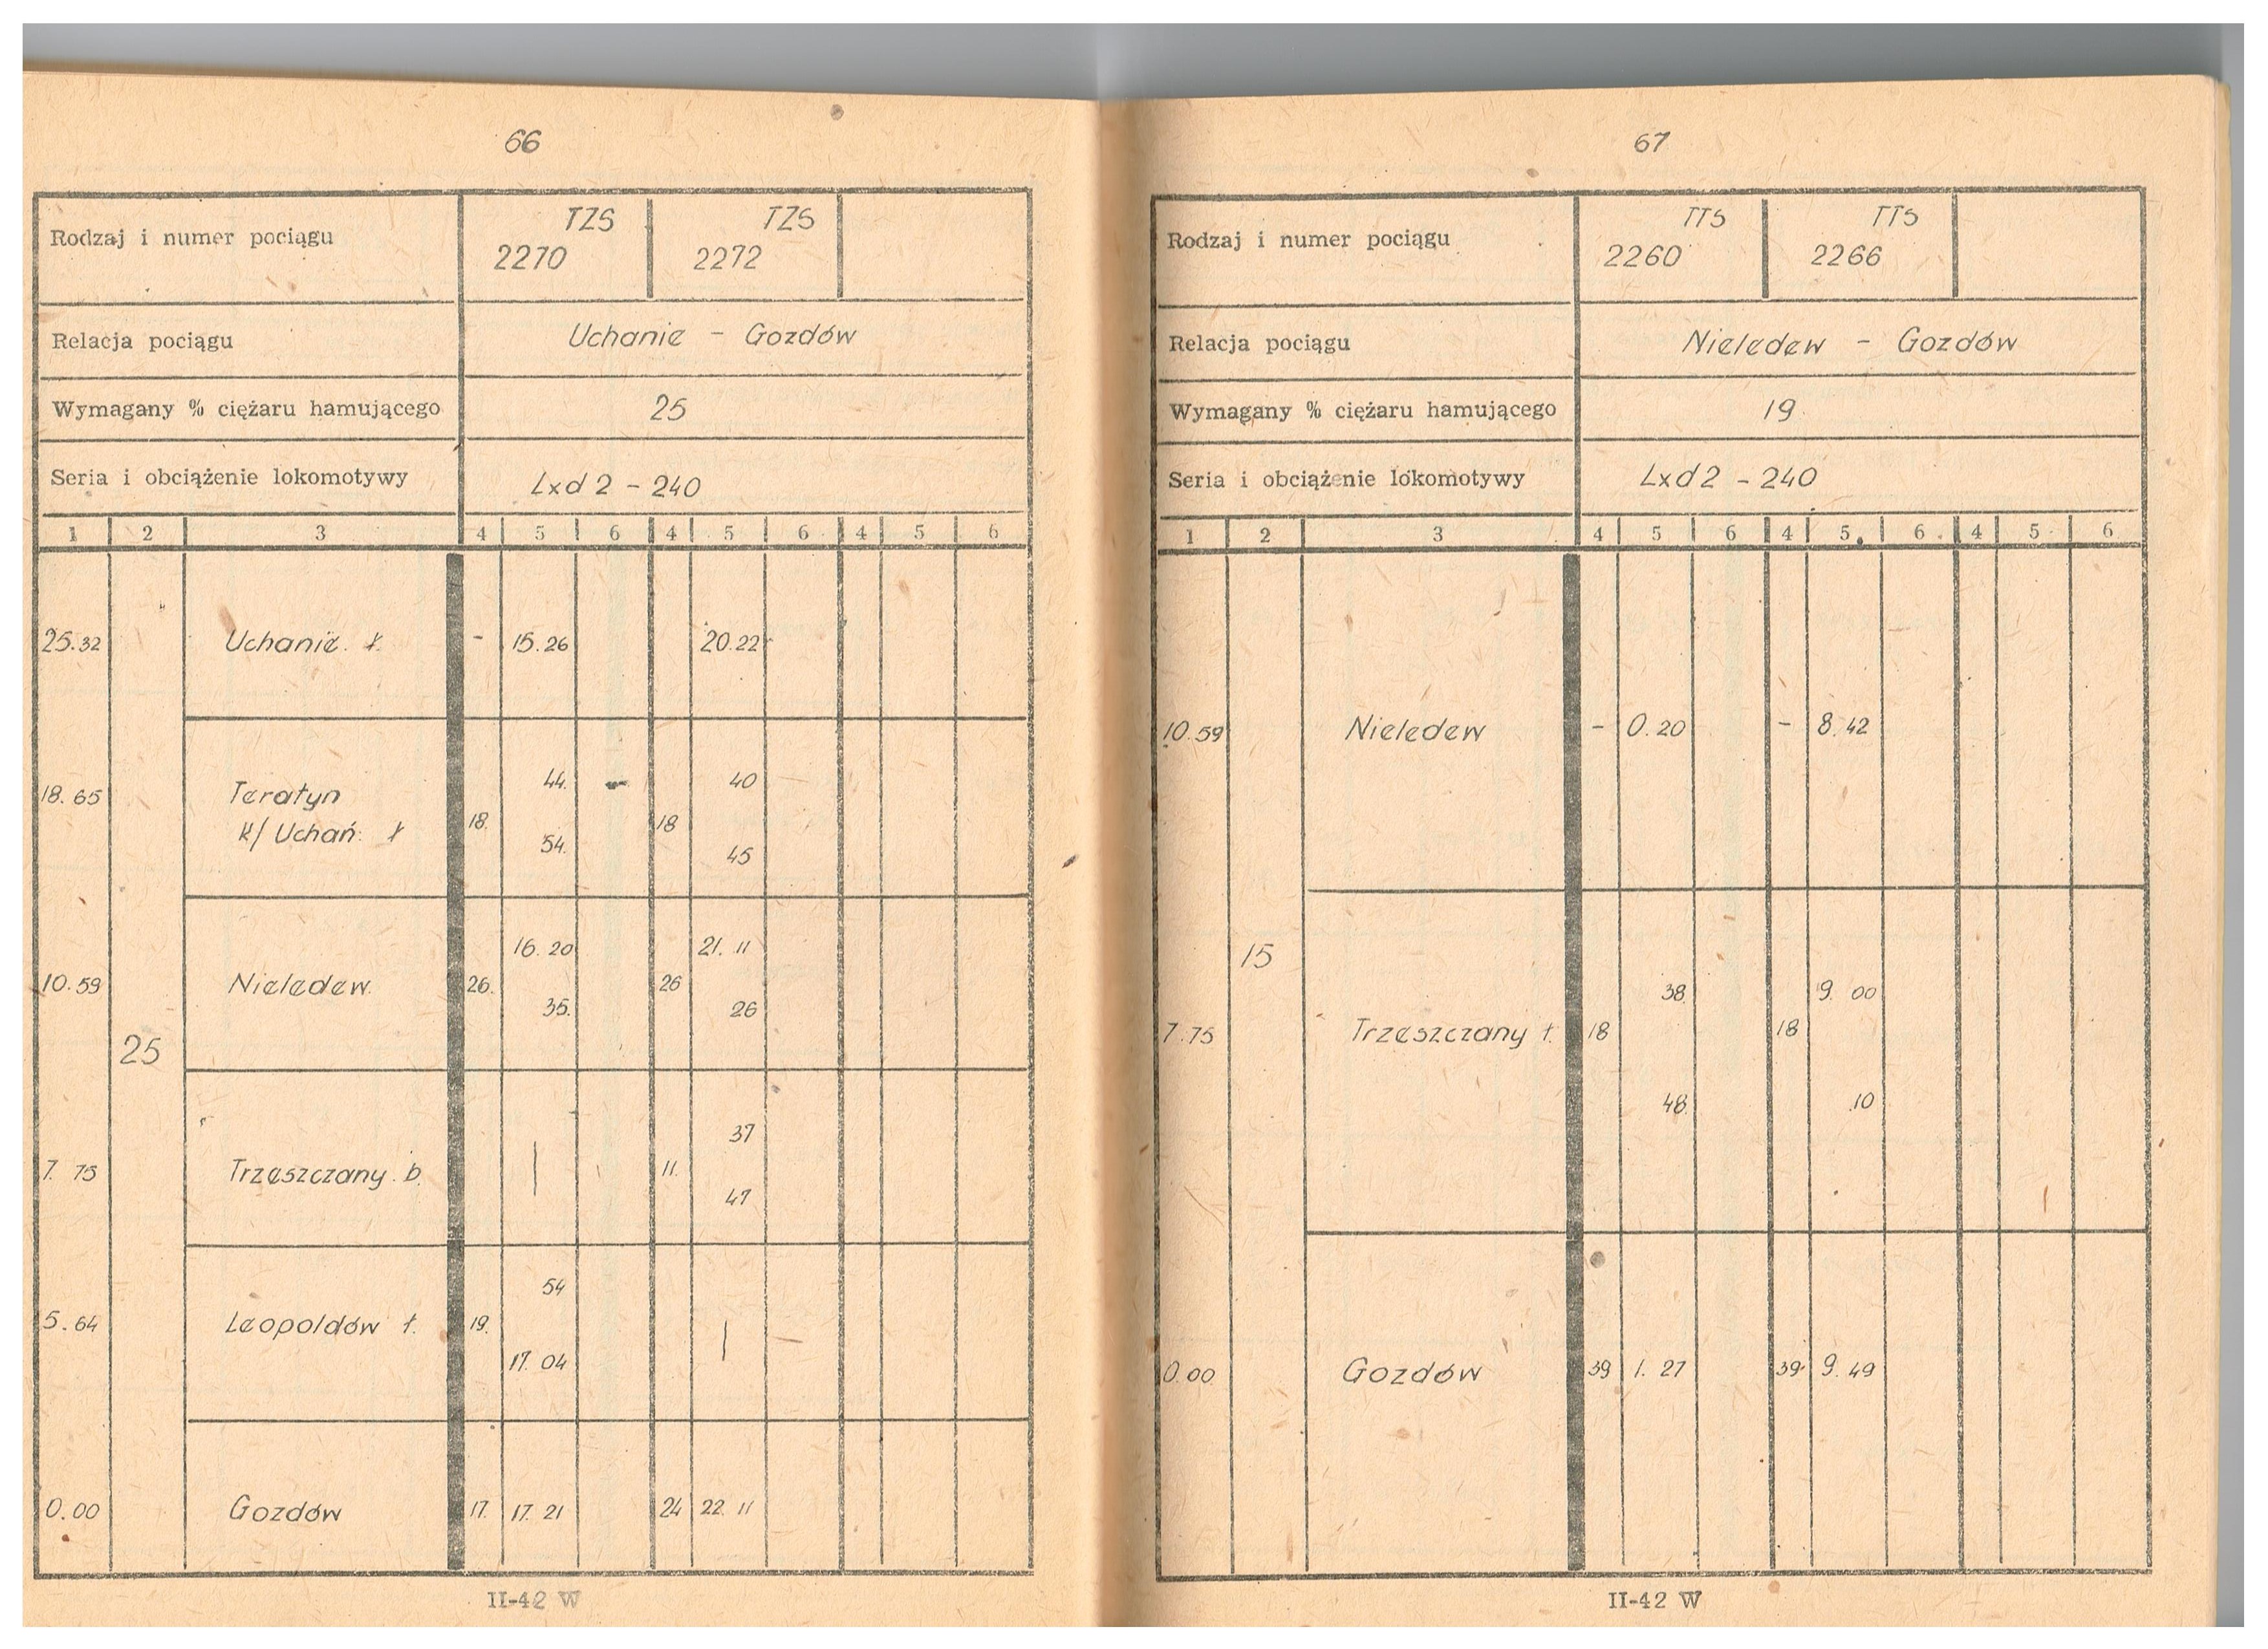 66
Rodzaj i numer pociągu TZS TZS
2270 2272
Relacja pociągu Uchanie - Gozdów
Wymagany % ciężaru hamującego 25
Seria i obciążenie lokomotywy Lxd2 - 240
1 2 3 4 5 6 4 5 6 4 5 6
25.32 Uchanie ł. - 15.26 20.22
44 40
18.65 Teratyn
k/Uchań ł 18. 18
54. 45
16.20 21.11
10.59 Nieledew. 26. 26
35. 26
25
37
7.75 Trzeszczany b. | 11.
47
54
5.64 Leopoldów ł. 19. |
17.04
0.00 Gozdów 17. 17.21 24 22.11
II-42 W
67
Rodzaj i numer pociągu TTS TTS
2260 2266
Relacja pociągu Nieledew - Gozdów
Wymagany % ciężaru hamującego 19
Seria i obciążenie lokomotywy Lxd2 - 240
1 2 3 4 5 6 4 5 6 4 5 6
10.59 Nieledew - 0.20 - 8.42
15
38 9.00
7.75 Trzeszczany ł. 18 18
48 10
0.00 Gozdów 39 1.27 39 9.49
II-42 W